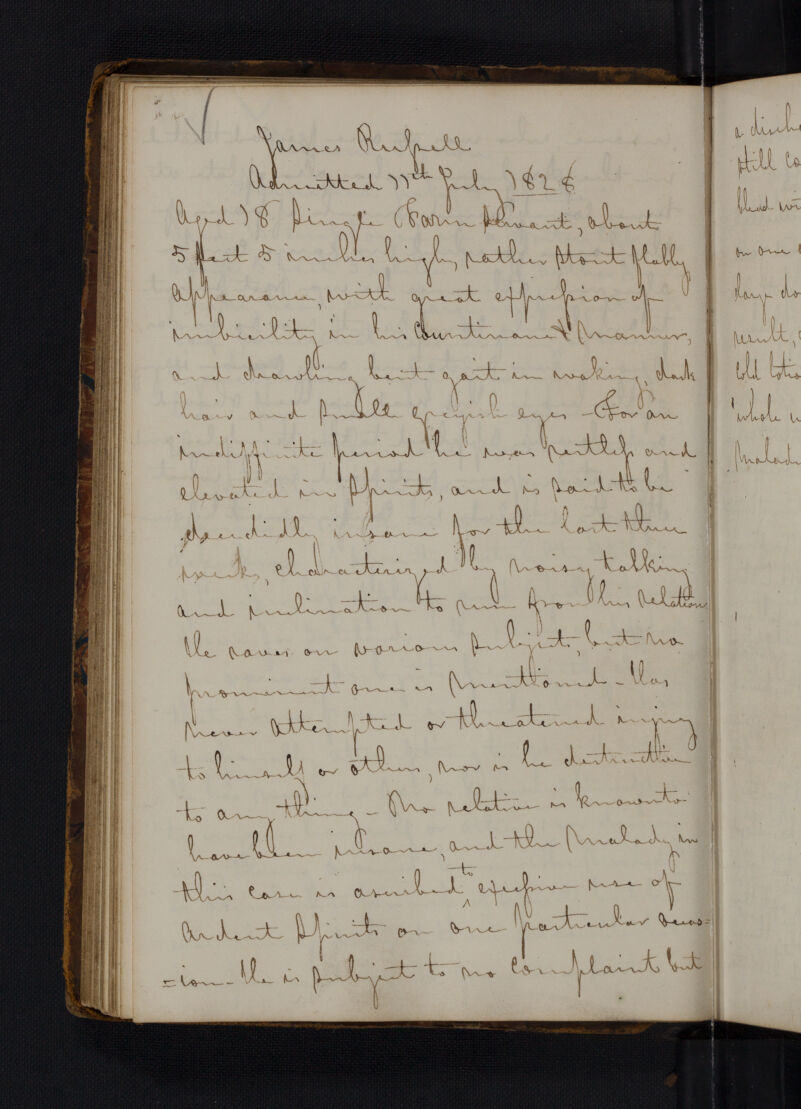 James Russell
Admitted 11th July 1828
Aged 18 Single Farm Servant, about
5 feet 5 inches high, rather stout flabby
appearance, with great expression of
imbicility in his Countenance & manner,
and drawling bent gait in walking, dark
hair and small greyish eyes - For an
indiffinite period he was restless and
elevated in spirits, and is said to be
decidedly insane for the last three
weeks, characterized by noisy talking
and inclination to run from his relations
He raves on various subjects, but no
prominent one is mentioned - Has
never attempted or threatened injury
to himself or others, nor is he destructive
to any thing - No relative is known to
have been insane, and the malady in
this case is ascribed to excessive use of
Ardent Spirits on one particular occas=
=ion - He is subject to no complaint but
a
still
blood
on one
large
result,
cold
whole